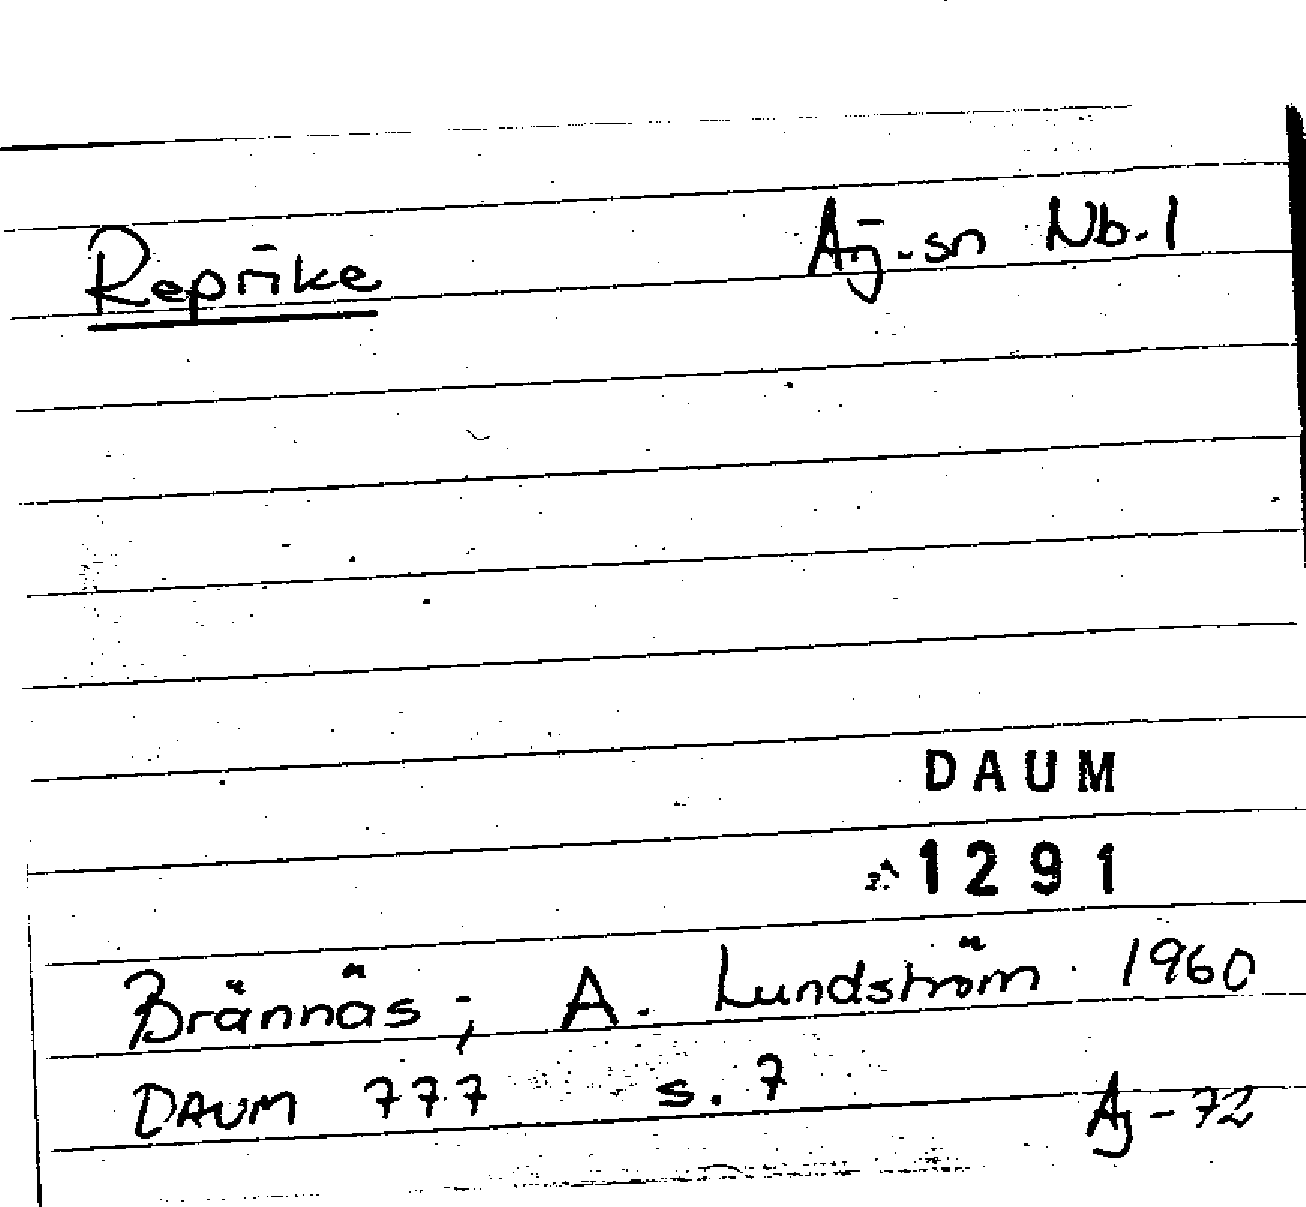 Reprike
Arj.-sn Nb.l
DAUM
1291
Brännäs; A. Lundström 1960
DAUM 777 s. 7
Aj-72